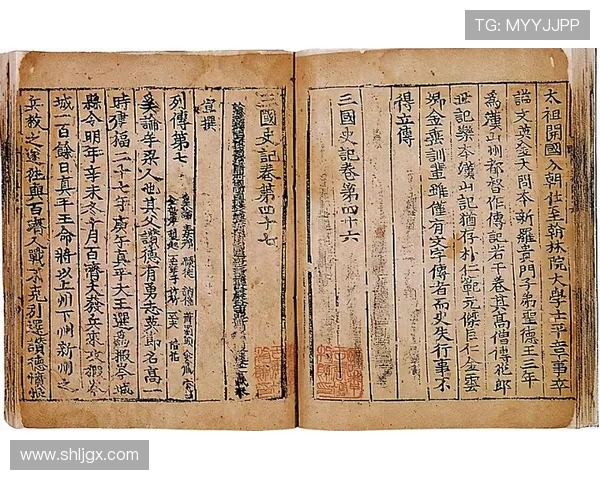 TG: MYYJJPP
太祖開國入朝仕至翰林院大學士平章事卒
諡文英金大問本新羅貴門子弟聖德王三年
為漢山州都督作傳記若干卷其高僧傳花郎
世記樂本漢山記猶存朴仁範元傑巨仁金雲
卿金垂訓輩雖僅有文字傳者而史失行事不
得立傳
三國史記卷第四十六
三國史記卷第四十七
宣撰
列傳第七
奚論牟梁人也其父讚德有勇志英節名高一
時建福二十七年庚午真平大王選為椵岑城
縣令明年辛未冬十月百濟大發兵來攻椵岑
城一百餘日真平王命將以上州下州新州之
兵救之遂往與百濟人戰不克引還讚德憤恨
www.shljgx.com